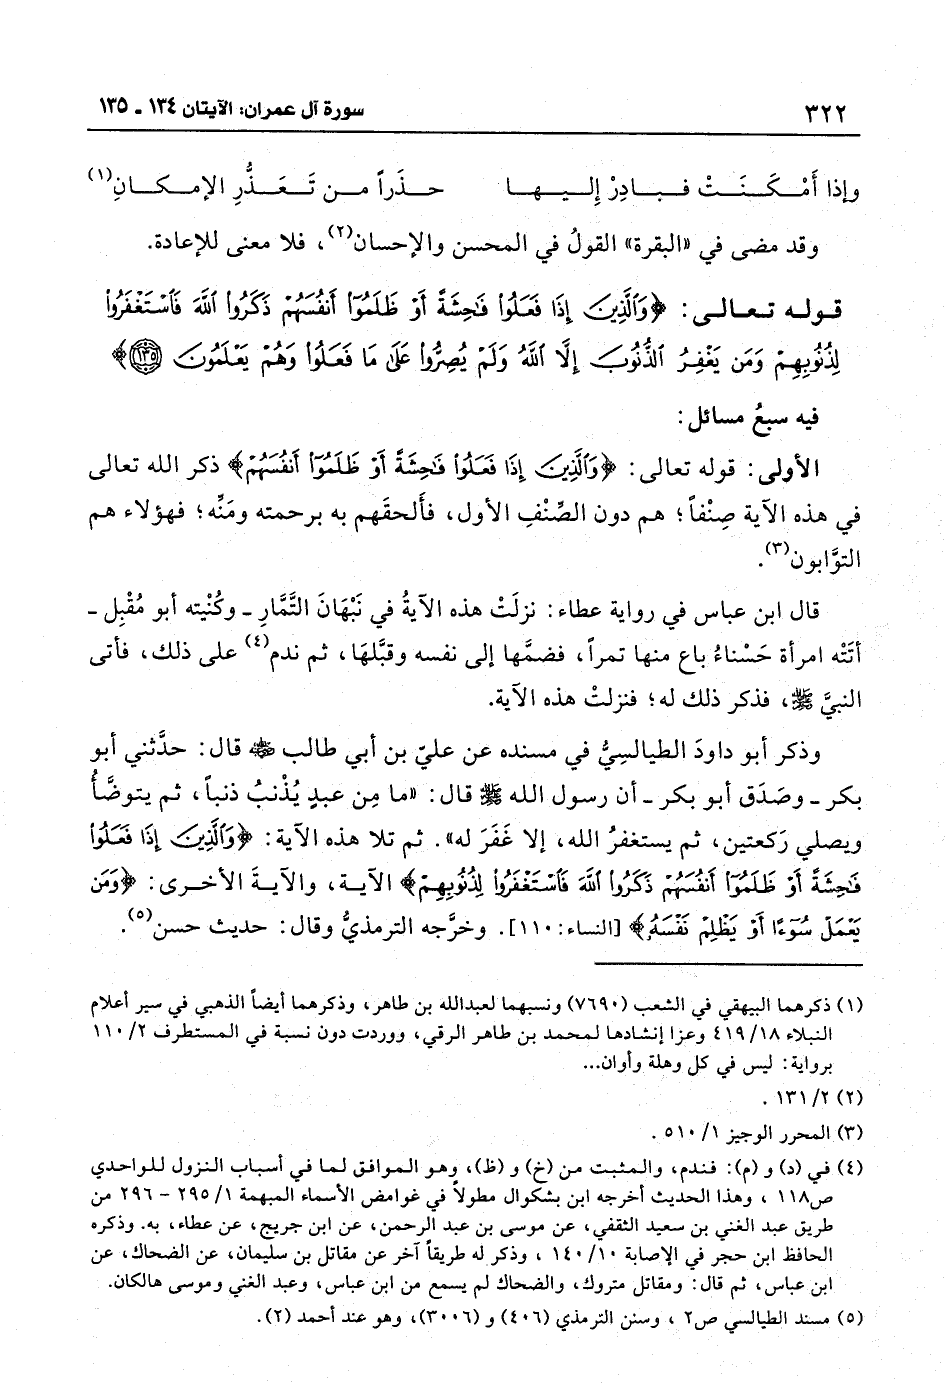 ٣٢٢
سورة آل عمران: الآيتان ١٣٤ ـ ١٣٥
وإذا أَمْكَنَتْ فبادِرْ إليها حذَراً من تَعَذُّرِ الإمكانِ(١)
وقد مضى في «البقرة» القولُ في المحسن والإحسان(٢)، فلا معنى للإعادة.
قوله تعالى: ﴿وَٱلَّذِينَ إِذَا فَعَلُوا۟ فَٰحِشَةً أَوْ ظَلَمُوٓا۟ أَنفُسَهُمْ ذَكَرُوا۟ ٱللَّهَ فَٱسْتَغْفَرُوا۟
لِذُنُوبِهِمْ وَمَن يَغْفِرُ ٱلذُّنُوبَ إِلَّا ٱللَّهُ وَلَمْ يُصِرُّوا۟ عَلَىٰ مَا فَعَلُوا۟ وَهُمْ يَعْلَمُونَ ١٣٥﴾
فيه سبعُ مسائل:
الأولى: قوله تعالى: ﴿وَٱلَّذِينَ إِذَا فَعَلُوا۟ فَٰحِشَةً أَوْ ظَلَمُوٓا۟ أَنفُسَهُمْ﴾ ذكر الله تعالى
في هذه الآية صِنْفاً؛ هم دون الصِّنْفِ الأول، فألحقَهم به برحمته ومَنِّه؛ فهؤلاء هم
التوَّابون(٣).
قال ابن عباس في رواية عطاء: نزلَتْ هذه الآيةُ في نَبْهَانَ التَّمَّارِ ـ وكُنْيته أبو مُقْبِل ـ
أتَتْه امرأة حَسْناءُ باع منها تمراً، فضمَّها إلى نفسه وقبَّلهَا، ثم ندم(٤) على ذلك، فأتى
النبيَّ ﷺ، فذكر ذلك له؛ فنزلتْ هذه الآية.
وذكر أبو داودَ الطيالسِيُّ في مسنده عن عليّ بن أبي طالب ﵁ قال: حدَّثني أبو
بكر ـ وصَدَق أبو بكر ـ أن رسول الله ﷺ قال: «ما مِن عبدٍ يُذْنبُ ذنباً، ثم يتوضَّأُ
ويصلي رَكعتين، ثم يستغفرُ الله، إلا غَفَرَ له». ثم تلا هذه الآية: ﴿وَٱلَّذِينَ إِذَا فَعَلُوا۟
فَٰحِشَةً أَوْ ظَلَمُوٓا۟ أَنفُسَهُمْ ذَكَرُوا۟ ٱللَّهَ فَٱسْتَغْفَرُوا۟ لِذُنُوبِهِمْ﴾ الآية، والآيةَ الأخرى: ﴿وَمَن
يَعْمَلْ سُوٓءًا أَوْ يَظْلِمْ نَفْسَهُۥ﴾ [النساء: ١١٠]. وخرَّجه الترمذيُّ وقال: حديث حسن(٥).
(١) ذكرهما البيهقي في الشعب (٧٦٩٠) ونسبهما لعبدالله بن طاهر، وذكرهما أيضاً الذهبي في سير أعلام
النبلاء ٤١٩/١٨ وعزا إنشادها لمحمد بن طاهر الرقي، ووردت دون نسبة في المستطرف ١١٠/٢
برواية: ليس في كل وهلة وأوان...
(٢) ١٣١/٢ .
(٣) المحرر الوجيز ٥١٠/١ .
(٤) في (د) و (م): فندم، والمثبت من (خ) و (ظ)، وهو الموافق لما في أسباب النزول للواحدي
ص١١٨ ، وهذا الحديث أخرجه ابن بشكوال مطولاً في غوامض الأسماء المبهمة ٢٩٥/١ - ٢٩٦ من
طريق عبد الغني بن سعيد الثقفي، عن موسى بن عبد الرحمن، عن ابن جريج، عن عطاء، به. وذكره
الحافظ ابن حجر في الإصابة ١٤٠/١٠ ، وذكر له طريقاً آخر عن مقاتل بن سليمان، عن الضحاك، عن
ابن عباس، ثم قال: ومقاتل متروك، والضحاك لم يسمع من ابن عباس، وعبد الغني وموسى هالكان.
(٥) مسند الطيالسي ص٢ ، وسنن الترمذي (٤٠٦) و (٣٠٠٦)، وهو عند أحمد (٢).